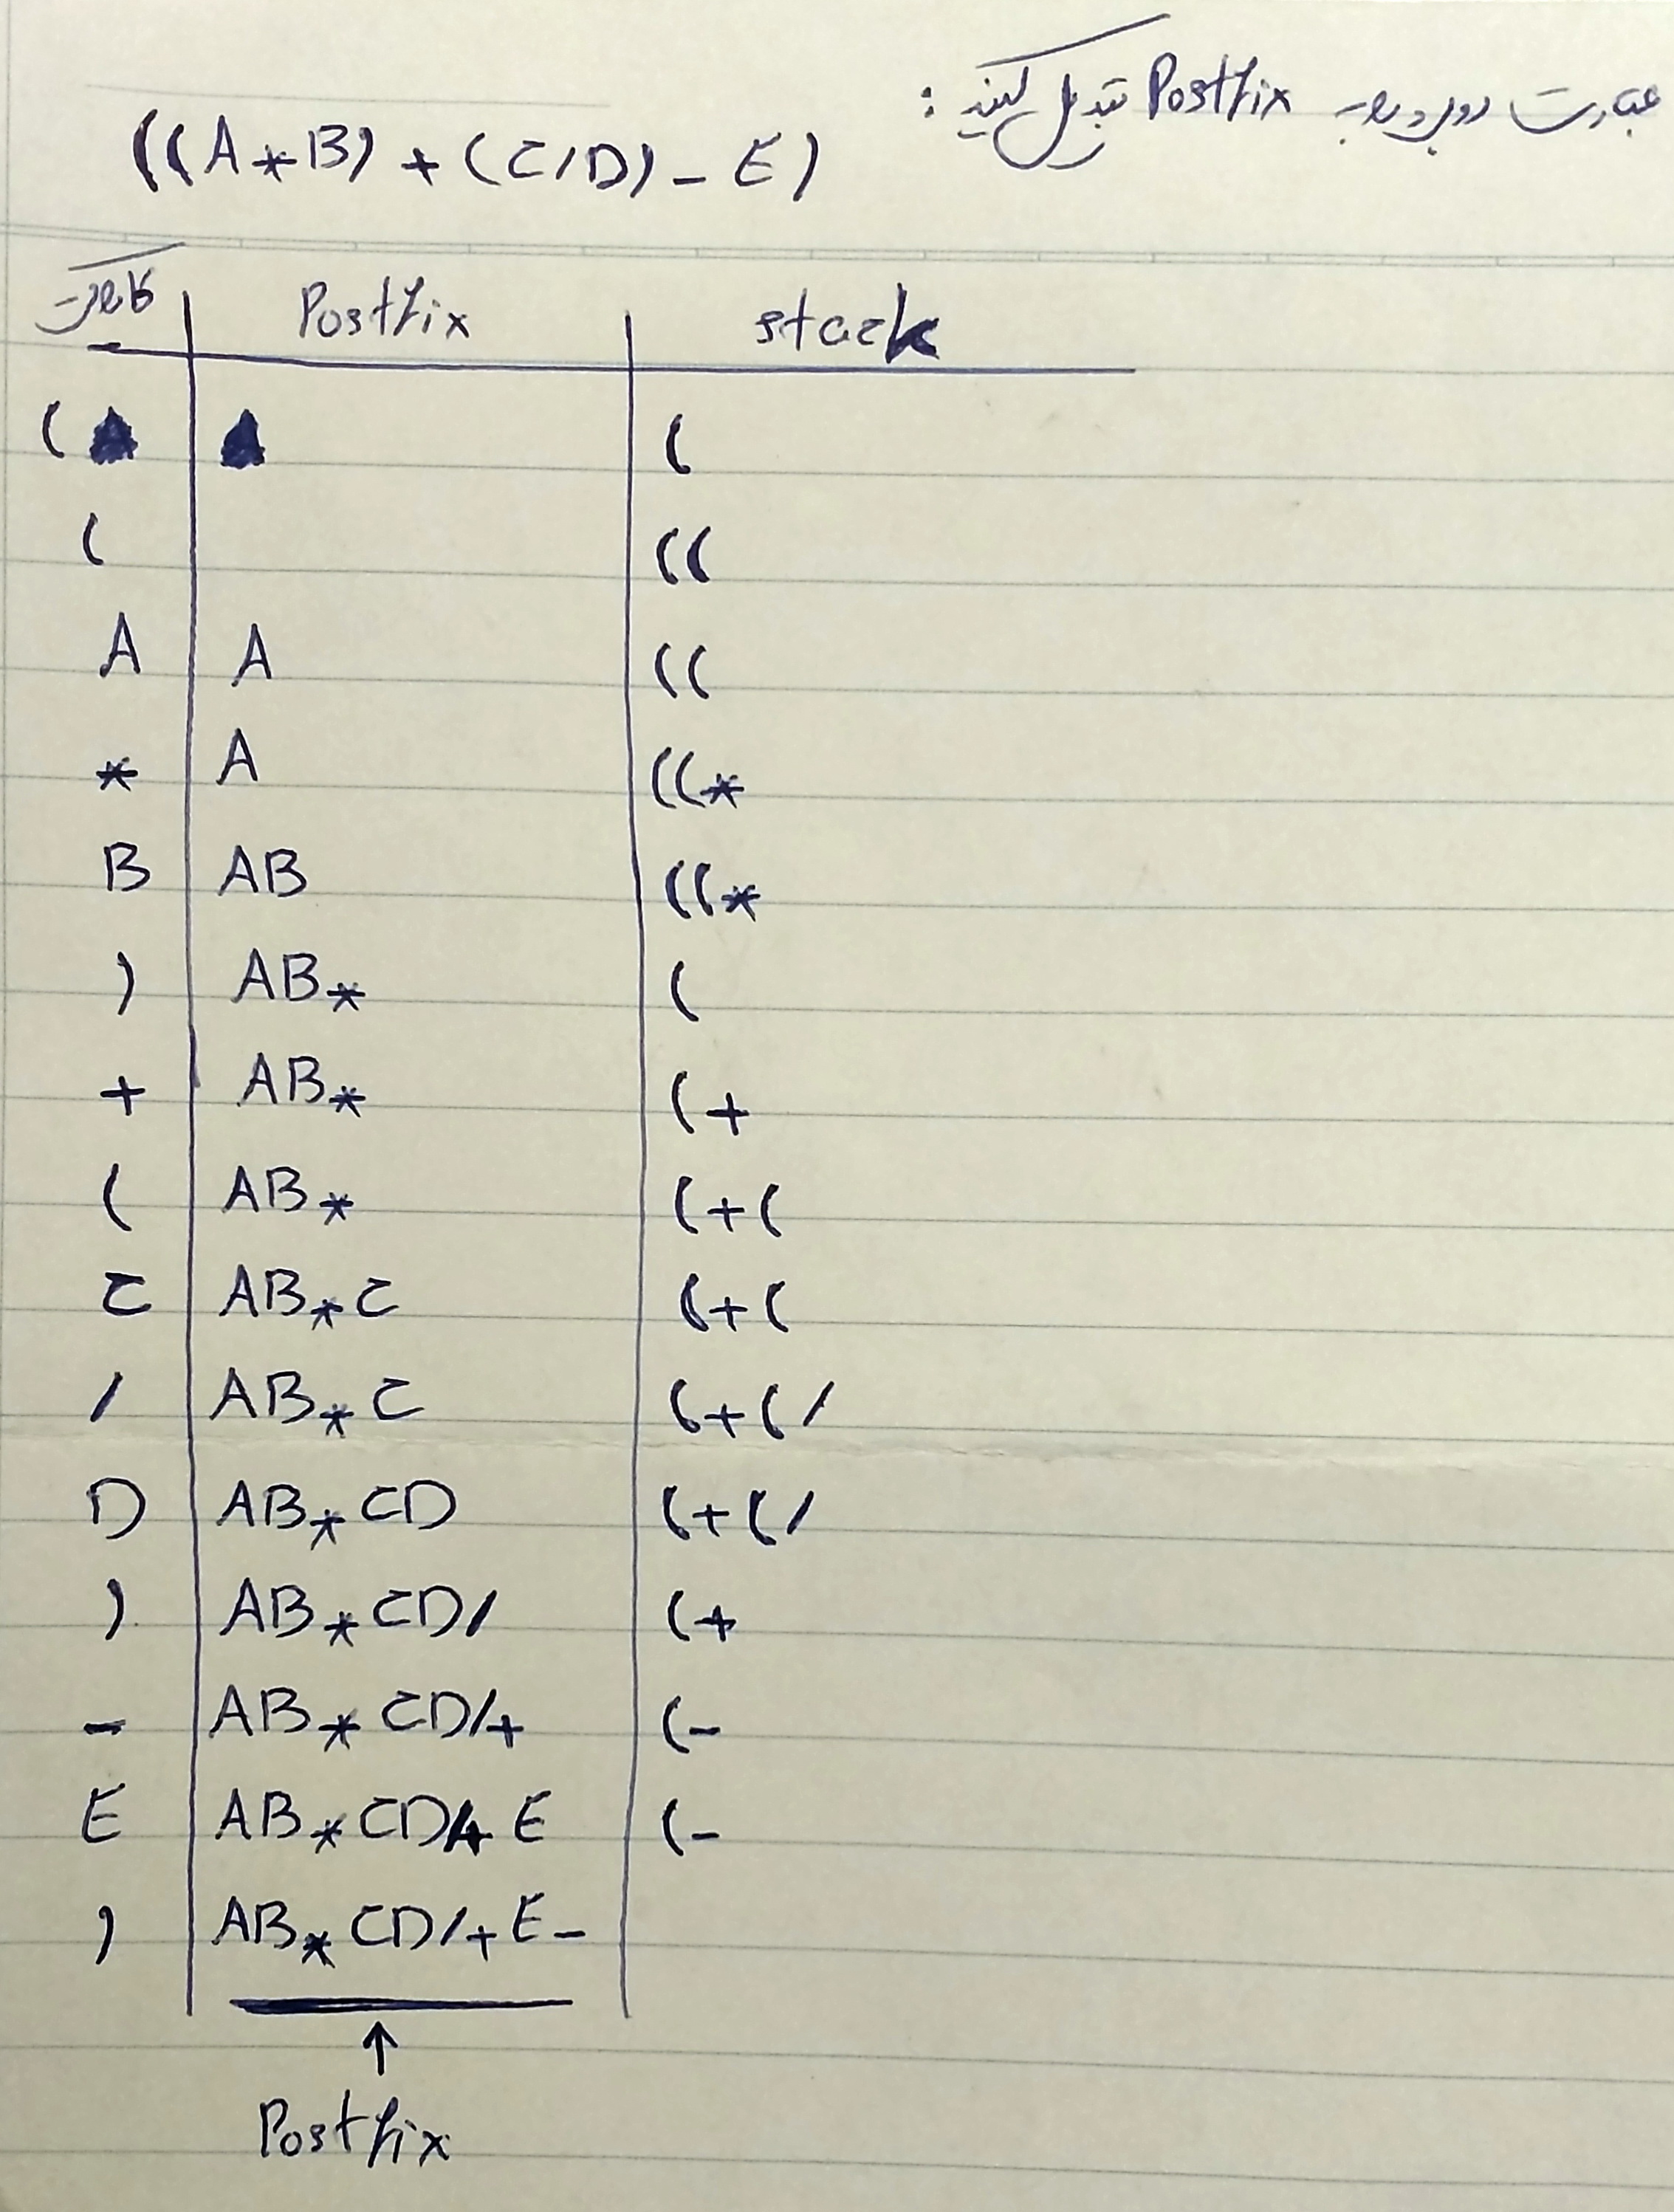 عبارت روبرو را به Postfix تبدیل کنید :
((A*B) + (C/D) - E)
کاراکتر Postfix stack
( (
( ((
A A ((
* A ((*
B AB ((*
) AB* (
+ AB* (+
( AB* (+(
C AB*C (+(
/ AB*C (+(/
D AB*CD (+(/
) AB*CD/ (+
- AB*CD/+ (-
E AB*CD/+E (-
) AB*CD/+E-
↑
Postfix